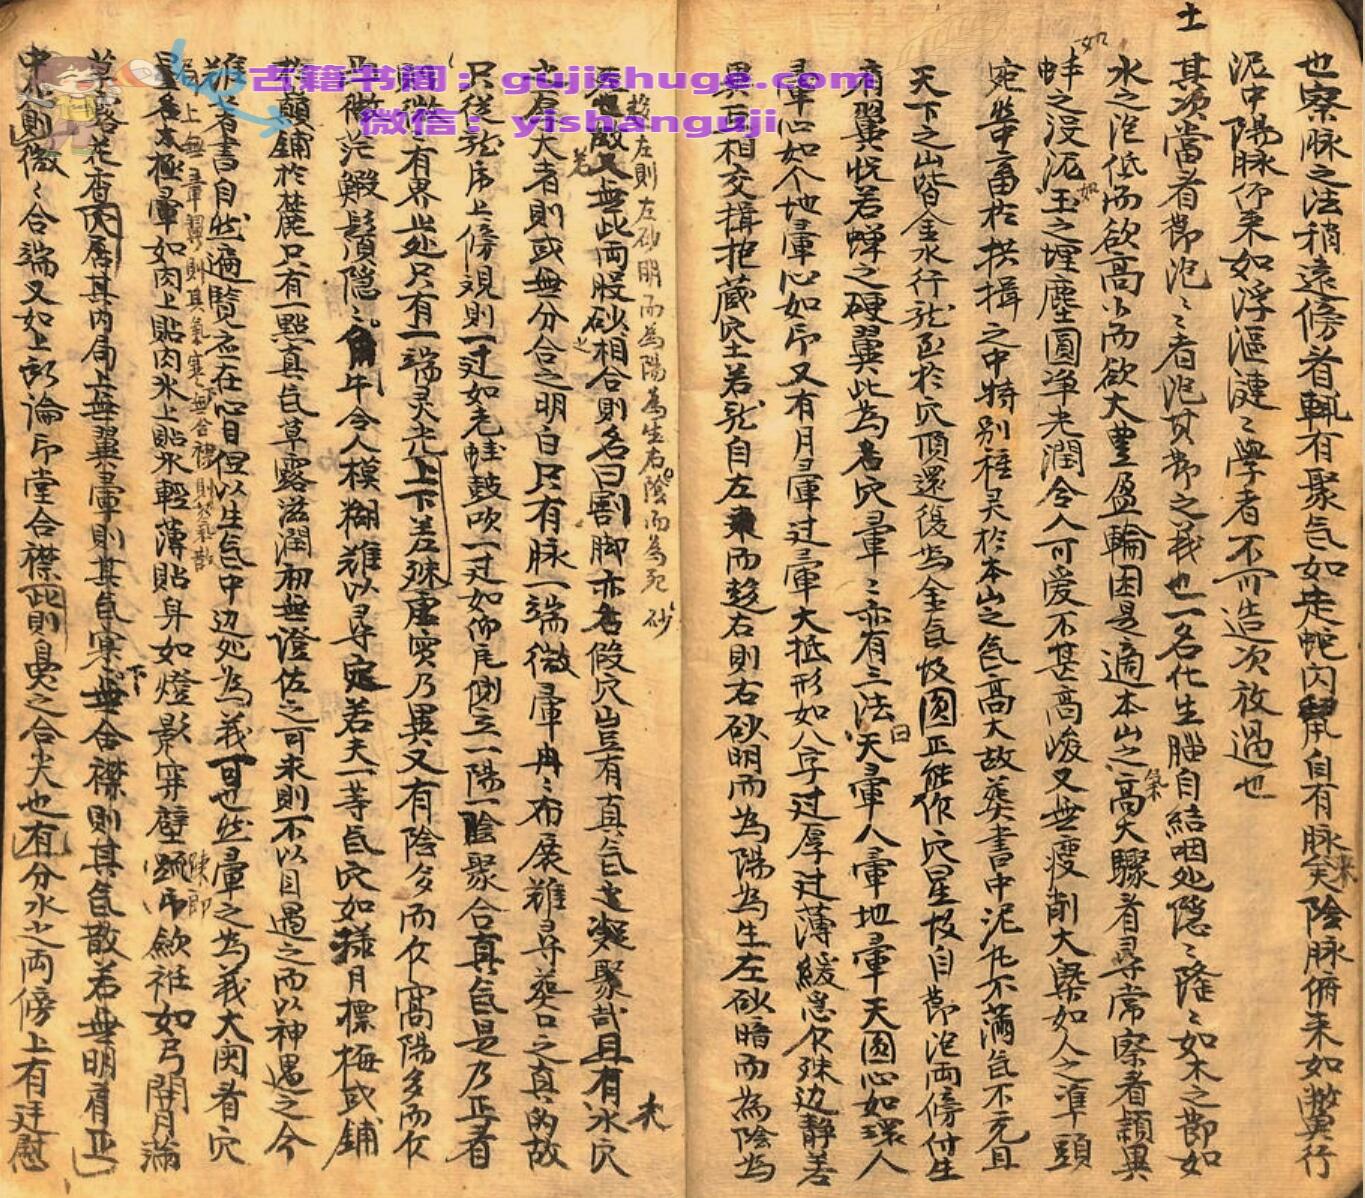 士
也察脉之法稍遠傍看輒有聚气如走蛇闪鼠自有脉来矣陰脉俯来如敝箕行
泥中陽脉仰来如浮漚漣〻學者不可造次放過也
其次當看節泡〻者泡其節之義也一名化生腦自結咽处隐〻隆〻如木之節如
水之泡低而欲高小而欲大豊盈輪囷是適本山之高大驟看尋常察看頴異
如蚌之没泥如玉之埋塵圓净光潤令人可爱不甚高峻又無瘦削大槩如人之準頭
拱揖之中特别種灵於本山之气高大故葬書中泥丸不滿气不充且
天下之山皆金水行龙至於穴頂還復為金气故圓正能作穴星故自節泡両傍付生
両翼恍若蝉之硬翼此為者穴暈〻亦有三法曰天暈人暈地暈天圓心如環人
暈心如个地暈心如命又有月暈过暈大抵形如八字过厚过薄緩急不殊边静若
異互相交揖抱蔵穴土若龙自左來而趍右則右砂明而為陽為生左砂暗而為陰為
趍左則左砂明而為陽為生右陰而為死砂
死也故又無此両股砂相合則名曰割脚亦名假穴豈有真气之凝聚哉且有氷穴
若厚大者則或無分合之明白只有脉一端微暈冉〻布展難寻葬口之真的故
只從龙虎上傍視則一过如老蛙鼓吹一过如仰瓦側立一陽一陰聚合真气是乃正者
有界此处只有一端灵光上下差殊虚实乃異又有陰多而不高陽多而不
微茫鰕鬚隐〻角牛令人模糊難以尋定若夫一等气穴如禄月標梅或鋪
顛鋪於麓只有一點真气草露滋潤初無證佐之可求則不以目遇之而以神遇之今
難者書自然遍覧在心目但以生气中边处為義可也然暈之為義大奥看穴
上無暈翼則其气寒無合襟則其气散
星名太極暈如肉上貼肉氷上貼氷輕薄貼身如燈影穿壁疎布歛袵如弓開月滿
草露花香内居其内局上無翼暈則其气寒下無合襟則其气散若無明肩正
中末則微〻合端又如上記論印堂合襟此則臭之合尖也有分水之両傍上有廷慰
古籍书阁：gujishuge.com
微信：yishanguji